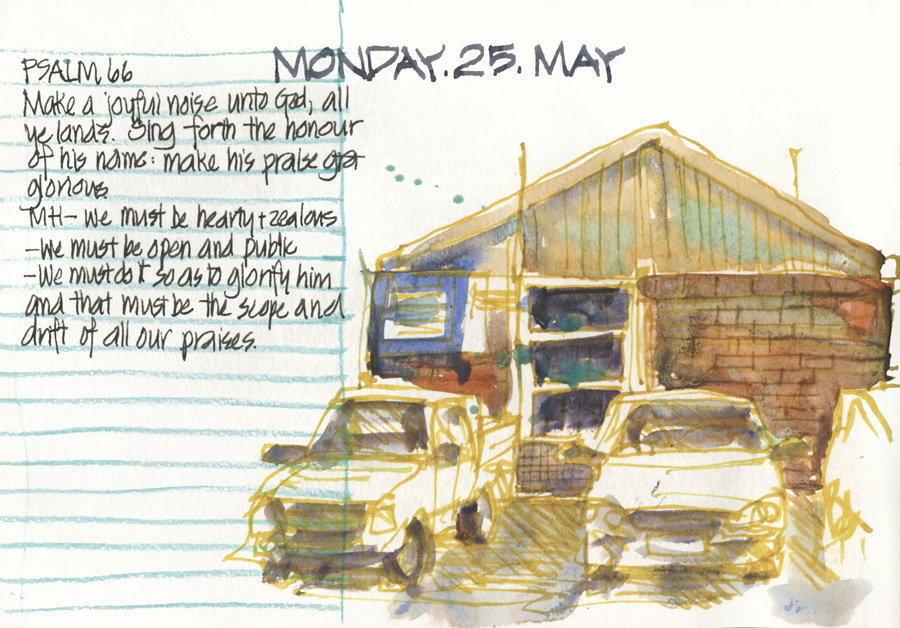 MONDAY. 25. MAY
PSALM 66
Make a joyful noise unto God, all
ye lands. Sing forth the honour
of his name: make his praise
glorious.
MH- We must be hearty + zealous
-We must be open and public
-We must do it so as to glorify him
and that must be the scope and
drift of all our praises.